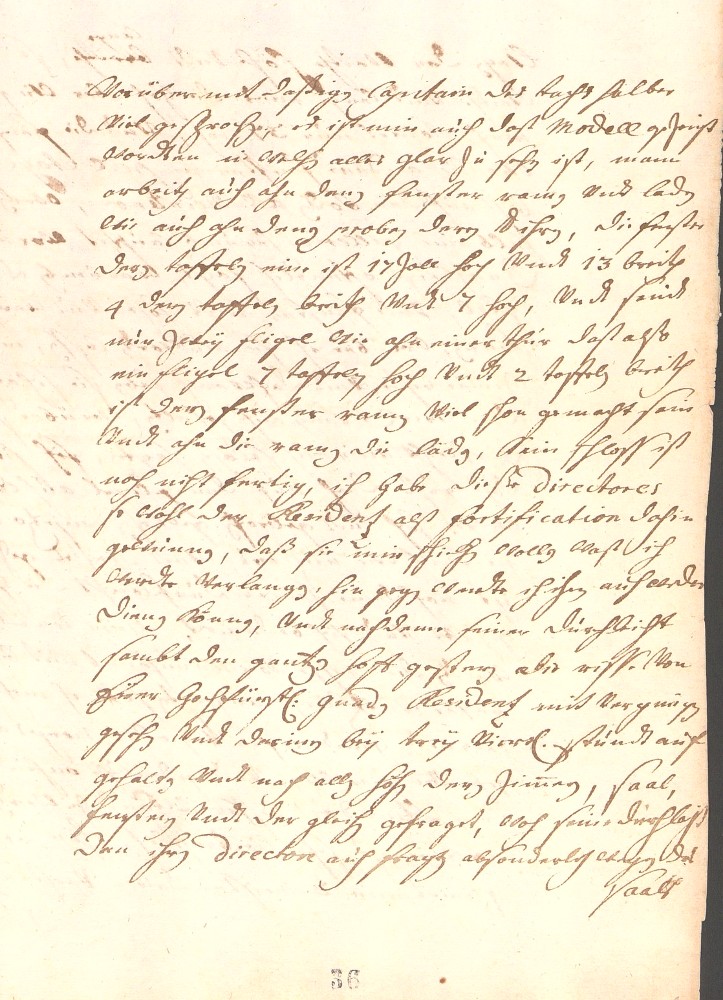 Worüber mit dasigen Capitain des tachs selber
Viel gesprochen, es ist mir auch das Modell gezeigt
Worden in welchen alles glar zu sehen ist, mann
arbeith auch ahn denen fenster ramen Undt laden
Wie auch ahn denen proben deren, die fenster
deren taffeln eine ist 17 Zoll hoch Undt 13 breith
4 deren taffeln breith Undt 7 hoch, Undt seindt
nur zwey fligel Wie ahn einer thür das also
ein fligel 7 taffeln hoch Undt 2 taffeln breith
ist deren fenster ramen Viel schon gemacht sein
Undt ahn die ramen die läden, Kein schloss ist
noch nicht fertig, ich habe diesse Directores
so Wohl der Residentz alss fortification dahin
gewunnen, dass sie mir Wollen Wass ich
Werdte Verlangen, hin gegen Werdte ich ihnen auch Wieder
dienen Können, Undt nachdeme seiner Durchleicht
sambt den gantzen hoff gestern abriss Von
Eüer Hochfürstl: gnaden Residentz mit Vergnügen
gesehen Undt darinen bey trey Viertl. stundt auf
gehalten Undt nach allen höhe deren Zimmer, Saal,
fenstern Undt der gleichen gefraget, seine Durchleicht
den ihren Directore auch fragen absonderlich Wegen des
Saals
36